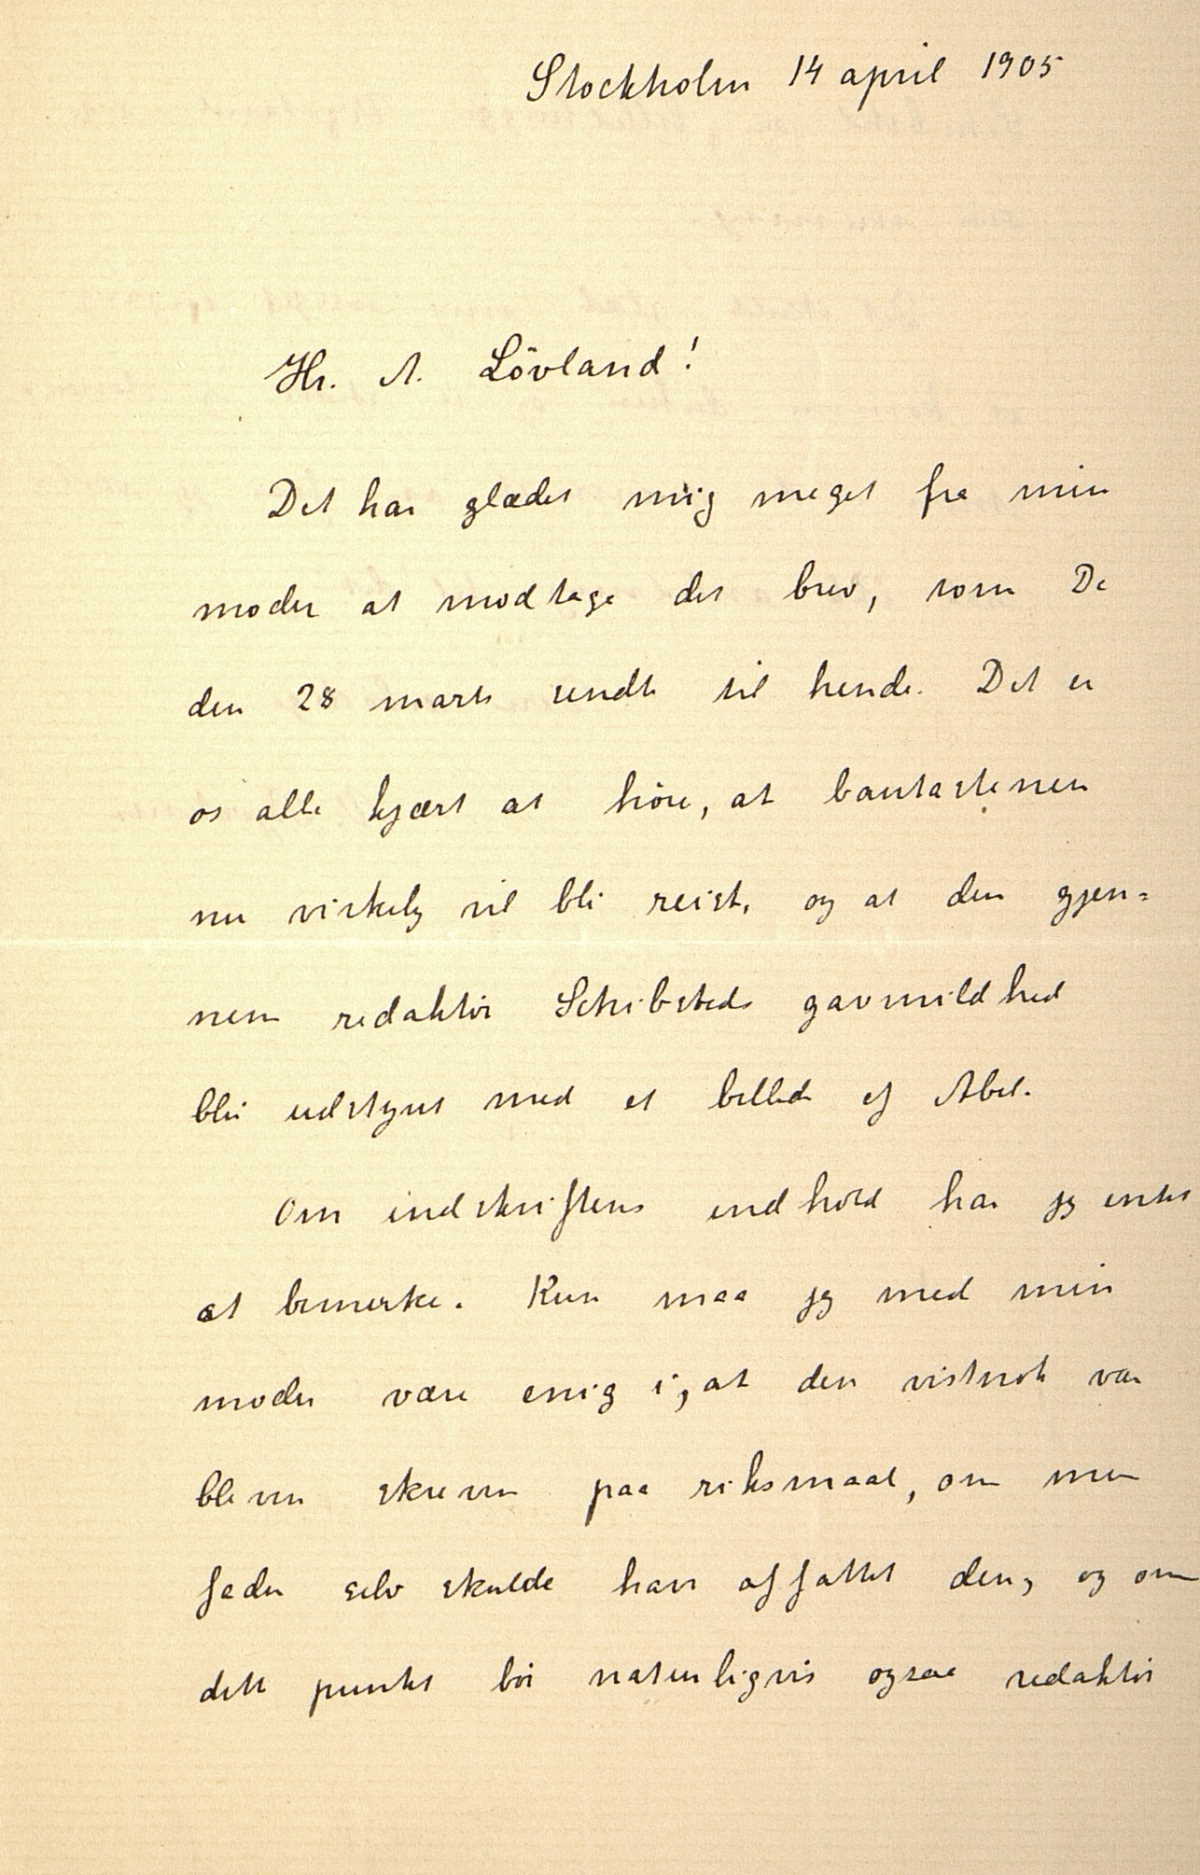 Stockholm 14 april 1905
Hr. A. Lövland!
Det har glædet mig meget fra min
moder at modtage det brev, som De
den 28 marts sendte til hende. Det er
os alle kjært at höre, at bautastenen
nu virkelig vil bli reist, og at den gjen=
nem redaktör Schibsteds gavmildhed
blir udstyret med et billede af Abel.
Om indskriftens indhold har jeg intet
at bemerke. Kun maa jeg med min
moder være enig i, at den vistnok var
bleven skreven paa riksmaal, om min
fader selv skulde have affattet den, og om
dette punkt bör naturligvis ogsaa redaktör